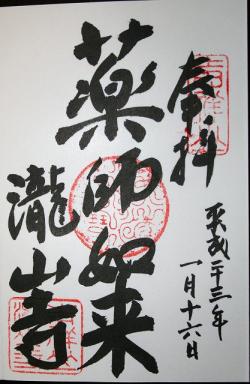 奉拝
平成二十三年
一月十六日
薬師如来
瀧山寺